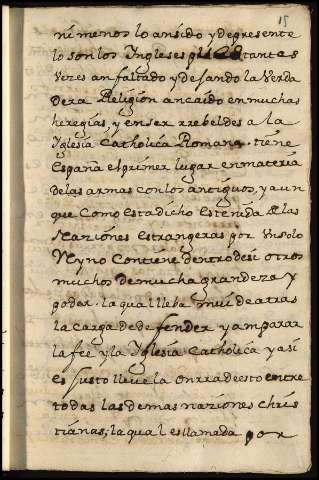 15
ni menos lo an sido y de presente
lo son los Ingleses pues tantas
vezes an faltado y dejando la Verda
dera Religion an caido en muchas
heregias, y en ser rrebeldes a la
Iglesia Catholica Romana. tiene
España el primer lugar en materia
de las armas con los antiguos, y aun
que como esta dicho es tenida de las
Naziones estrangeras por un solo
Reyno contiene dentro de si otros
muchos de mucha grandeza y
poder. la qual lleba mui de atras
la carga de defender y amparar
la fee y la Iglesia Catholica y asi
es justo lleve la onrra de esto entre
todas las demas naziones chris
tianas, la qual es llamada por